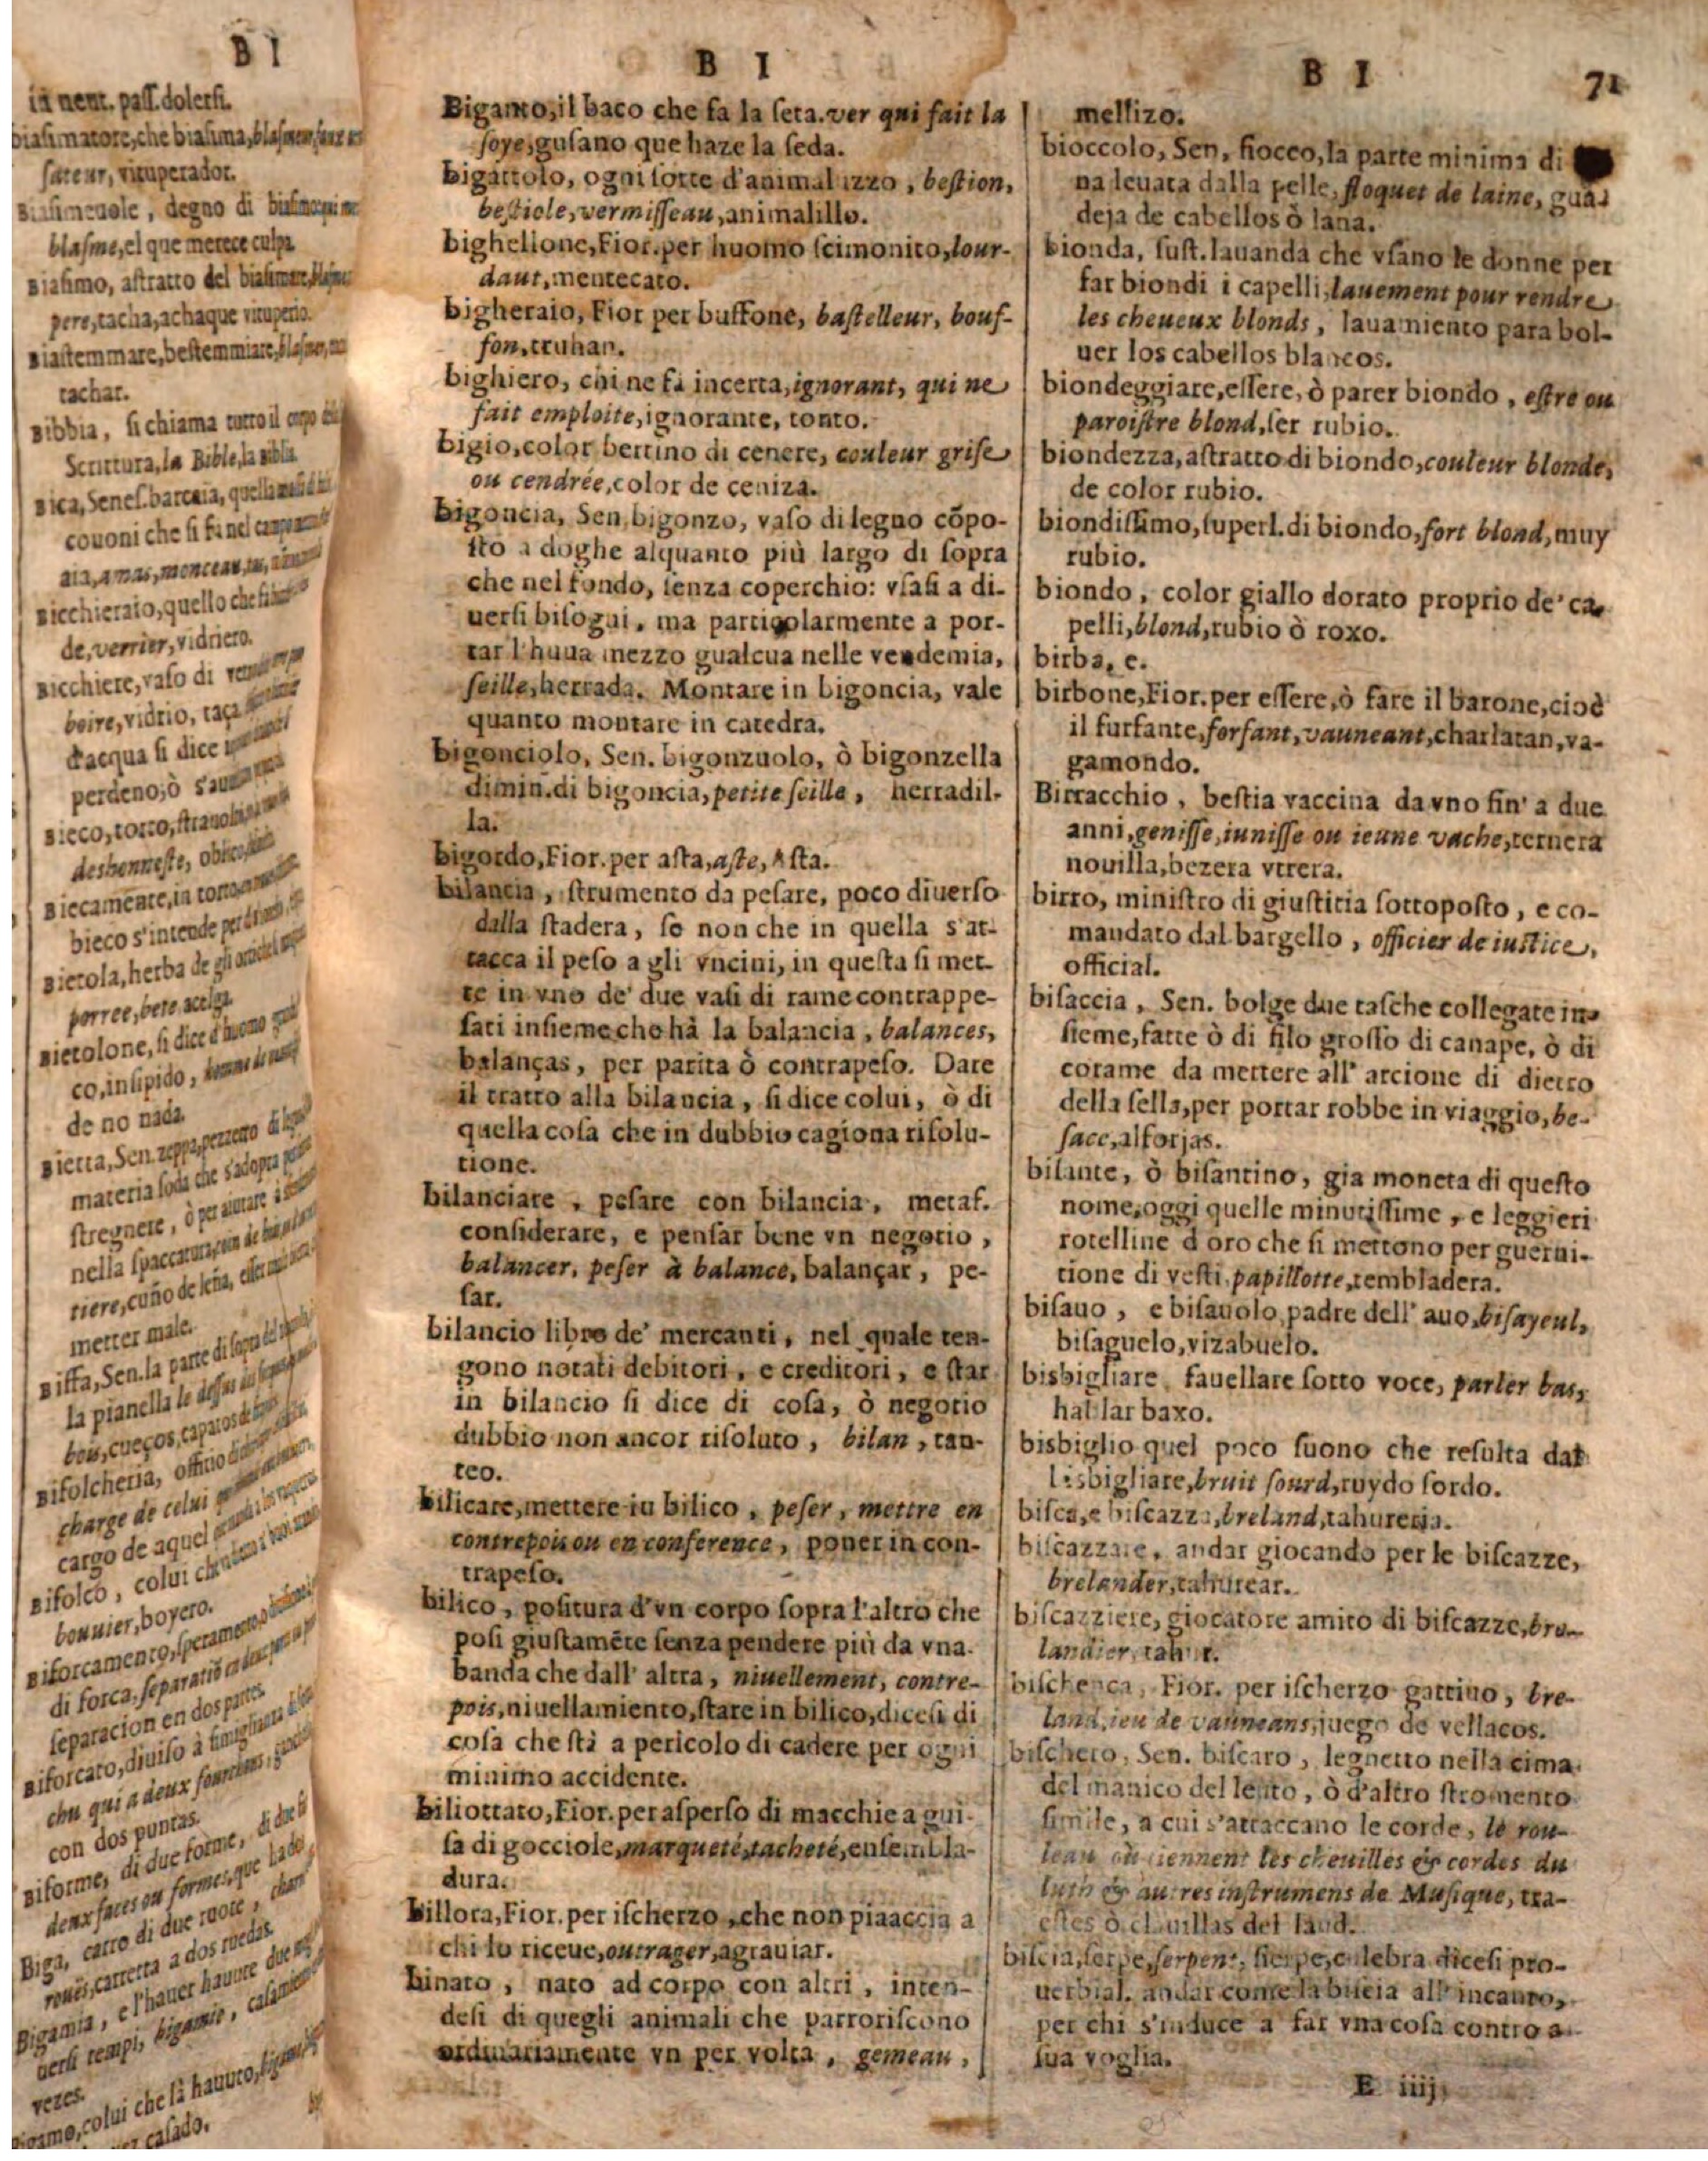 B I
ia neut. paſſ. dolerſi.
biaſimatore, che biaſima,
ſateur, vituperador.
Biaſimeuole, degno di
blaſme, el que merece culpa.
Biaſimo, aſtratto del biaſimare,
pere, tacha, achaque vituperio.
Biaſtemmare, beſtemmiare,
tachar.
Bibbia, ſi chiama tutto il corpo
Scrittura, la Bible, la Biblia.
Bica, Seneſ. barcaia, quella
couoni che ſi fa nel campo
aia, amas, monceau,
Bicchieraio, quello che fa
de, verrier, vidriero.
Bicchiere, vaſo di
boire, vidrio, taça
d'acqua ſi dice
perdeno, ò
Bieco, torto,
deshonneſte,
Biecamente, in torto
bieco s'intende per
Bietola, herba de gli
porree, bete acelga.
Bietolone, ſi dice d'huomo
co, inſipido,
de no nada.
Bietta, Sen. zeppa, pezzetto di
materia ſoda che s'adopra
ſtregnere, ò per aiutare
nella ſpaccatura,
tiere, cuño de leña,
metter male.
Biffa, Sen. la parte di ſopra del
la pianella le deſſus
bou, cueços, çapatos
Bifolcheria, offitio
charge de celui
cargo de aquel
Bifolco, colui che
bouuier, boyero.
Biforcamento, ſperamento
di forca. ſeparatiō
ſeparacion en dos partes.
Biforcato, diuiſo à ſimiglianza
chu qui a deux fourchons,
con dos puntas.
Biforme, di due forme,
deux faces ou formes, que
Biga, carro di due ruote,
roués, carreta a dos ruedas.
Bigamia, e l'hauer hauute due
uerſi tempi, bigamie,
vezes.
Bigamo, colui che hà hauuto,
caſado.
B I
Bigatto, il baco che fa la ſeta. ver qui fait la
ſoye, guſano que haze la ſeda.
bigattolo, ogni ſorte d'animaluzzo, beſtion,
beſtiole, vermiſſeau, animalillo.
bighellone, Fior. per huomo ſcimonito, lour-
daut, mentecato.
bigheraio, Fior per buffone, baſtelleur, bouf-
fon, truhan.
bighiero, chi ne fà incetta, ignorant, qui ne
fait emploite, ignorante, tonto.
bigio, color bertino di cenere, couleur griſe
ou cendrée, color de ceniza.
bigoncia, Sen. bigonzo, vaſo di legno cōpo-
ſto a doghe alquanto più largo di ſopra
che nel fondo, ſenza coperchio: vſaſi a di-
uerſi biſogni, ma particolarmente a por-
tar l'huua mezzo gualcua nelle vendemia,
ſeille, herrada. Montare in bigoncia, vale
quanto montare in catedra.
bigonciolo, Sen. bigonzuolo, ò bigonzella
dimin. di bigoncia, petite ſeille, herradil-
la.
bigordo, Fior. per aſta, aſte, Aſta.
bilancia, ſtrumento da peſare, poco diuerſo
dalla ſtadera, ſe non che in quella s'at-
tacca il peſo a gli vncini, in queſta ſi met-
te in vno de' due vaſi di rame contrappe-
ſati inſieme che hà la balancia, balances,
balanças, per parita ò contrapeſo. Dare
il tratto alla bilancia, ſi dice colui, ò di
quella coſa che in dubbio cagiona riſolu-
tione.
bilanciare, peſare con bilancia, metaf.
conſiderare, e penſar bene vn negotio,
balancer, peſer à balance, balançar, pe-
ſar.
bilancio libro de' mercanti, nel quale ten-
gono notati debitori, e creditori, e ſtar
in bilancio ſi dice di coſa, ò negotio
dubbio non ancor riſoluto, bilan, tan-
teo.
bilicare, mettere in bilico, peſer, mettre en
contrepois ou en conference, poner in con-
trapeſo.
bilico, poſitura d'vn corpo ſopra l'altro che
poſi giuſtamēte ſenza pendere più da vna
banda che dall' altra, niuellement, contre-
pois, niuellamiento, ſtare in bilico, diceſi di
coſa che ſtà a pericolo di cadere per ogni
minimo accidente.
biliottato, Fior. per aſperſo di macchie a gui-
ſa di gocciole, marqueté, tacheté, enſembla-
dura.
billora, Fior. per iſcherzo, che non piaaccia a
chi lo riceue, outrager, agrauiar.
binato, nato ad corpo con altri, inten-
deſi di quegli animali che partoriſcono
ordinariamente vn per volta, gemeau,
B I 71
mellizo.
bioccolo, Sen, fiocco, la parte minima di
na leuata dalla pelle, floquet de laine, gua-
deja de cabellos ò lana.
bionda, ſuſt. lauanda che vſano le donne per
far biondi i capelli, lauement pour rendre
les cheueux blonds, lauamiento para bol-
uer los cabellos blancos.
biondeggiare, eſſere, ò parer biondo, eſtre ou
paroiſtre blond, ſer rubio.
biondezza, aſtratto di biondo, couleur blonde,
de color rubio.
biondiſſimo, ſuperl. di biondo, fort blond, muy
rubio.
biondo, color giallo dorato proprio de' ca-
pelli, blond, rubio ò roxo.
birba, e.
birbone, Fior. per eſſere, ò fare il barone, cioè
il furfante, forfant, vauneant, charlatan, va-
gamondo.
Birracchio, beſtia vaccina da vno fin' a due
anni, geniſſe, iuniſſe ou ieune vache, ternera
nouilla, bezera vtrera.
birro, miniſtro di giuſtitia ſottopoſto, e co-
mandato dal bargello, officier de iuſtice,
official.
biſaccia, Sen. bolge due taſche collegate in-
ſieme, fatte ò di filo groſſo di canape, ò di
corame da mettere all' arcione di dietro
della ſella, per portar robbe in viaggio, be-
ſace, alforjas.
biſante, ò biſantino, gia moneta di queſto
nome, oggi quelle minutiſſime, e leggieri
rotelline d oro che ſi mettono per guerni-
tione di veſti, papillotte, tembladera.
biſauo, e biſauolo padre dell' auo, biſayeul,
biſaguelo, vizabuelo.
bisbigliare, fauellare ſotto voce, parler bas,
hablar baxo.
bisbiglio quel poco ſuono che reſulta dal
bisbigliare, bruit ſourd, ruydo ſordo.
biſca, e biſcazza, breland, tahureria.
biſcazzare, andar giocando per le biſcazze,
brelander, tahurear.
biſcazziere, giocatore amico di biſcazze, bre-
landier, tahur.
biſchenca, Fior. per iſcherzo gattiuo, bre-
land, ieu de vauneans, juego de vellacos.
biſchero, Sen. biſcaro, legnetto nella cima
del manico del leuto, ò d'altro ſtromento
ſimile, a cui s'attaccano le corde, le rou-
leau où tiennent les cheuilles & cordes du
luth & autres inſtrumens de Muſique, tra-
ſtes ò clauillas del laud.
biſcia, ſerpe, ſerpent, ſierpe, culebra diceſi pro-
uerbial. andar come la biſcia all' incanto,
per chi s'induce a far vna coſa contro a
ſua voglia.
E iiij